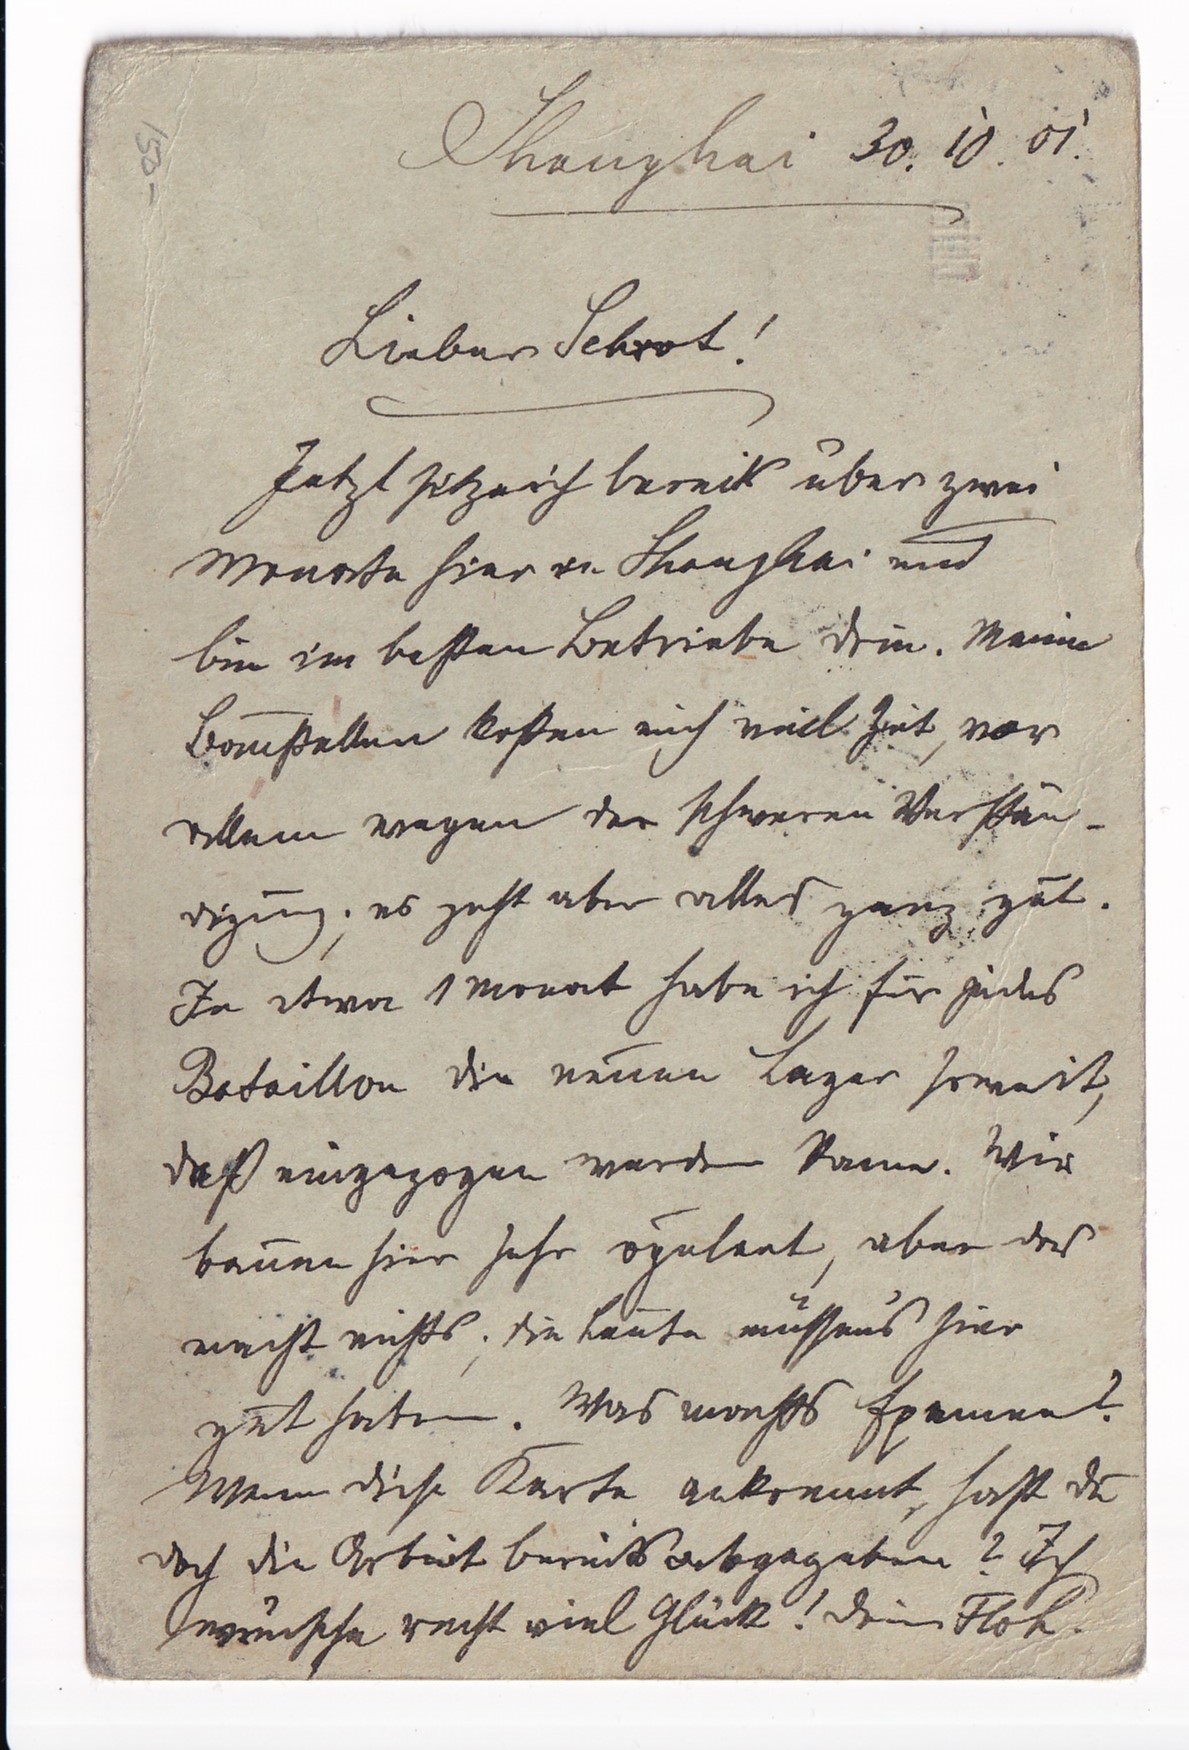 Shanghai 30. 10. 01.
Lieber Schrot!
Jetzt sitze ich bereits über zwei
Monate hier in Shanghai und
bin im besten Betriebe drin. Meine
Baustellen kosten mich viel Zeit, vor
allem wegen der schweren Verstän-
digung; es geht aber alles ganz gut.
In etwa 1 Monat habe ich für jedes
Bataillon die neuen Lager soweit,
daß eingezogen werden kann. Wir
bauen hier sehr opulent, aber das
macht nichts; die Leute müssens hier
gut haben. Was machts Examen?
Wenn diese Karte ankommt, hast du
doch die Arbeit bereits abgegeben? Ich
wünsche recht viel Glück! Dein Floh.
150-